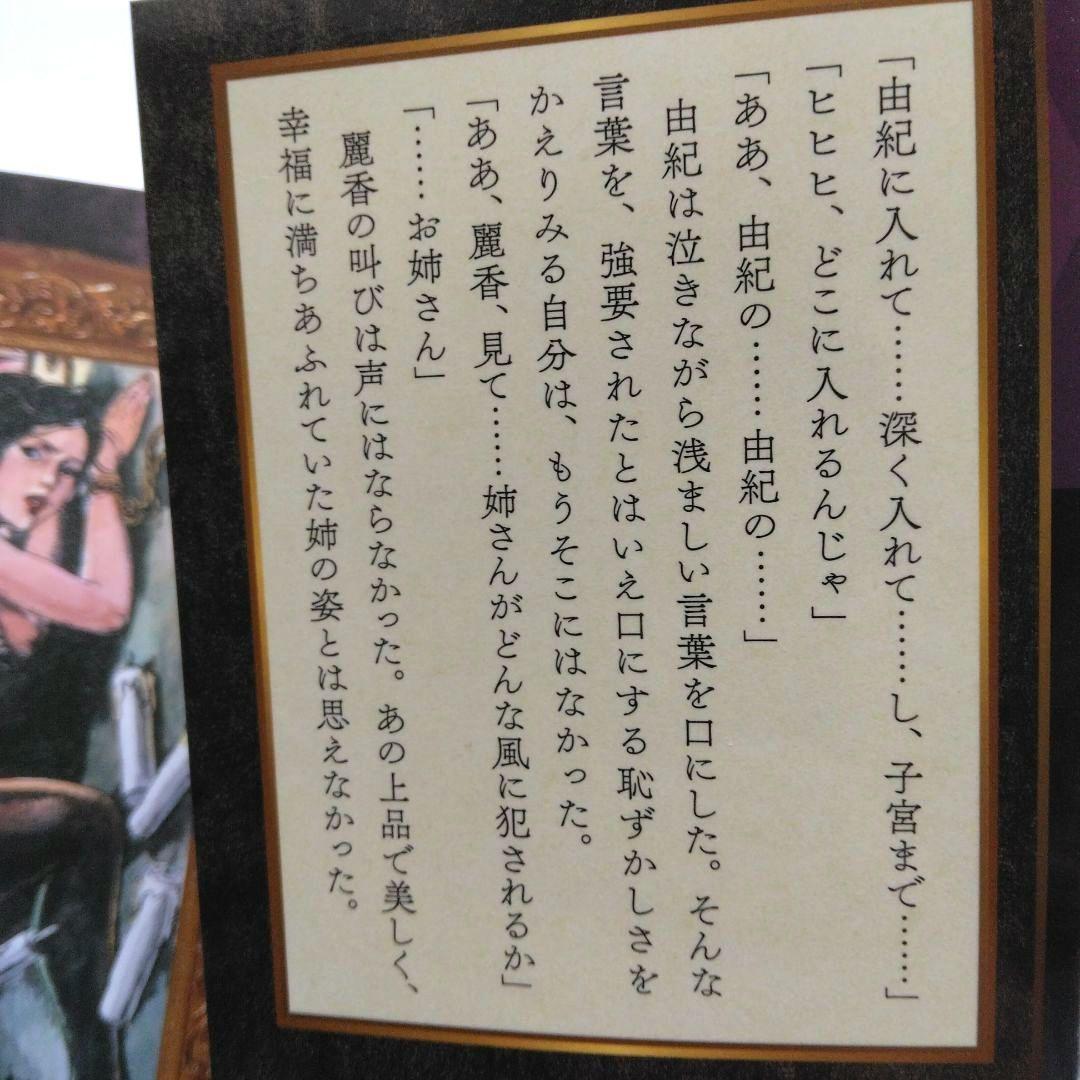 「由紀に入れて……深く入れて……し、子宮まで……」
「ヒヒヒ、どこに入れるんじゃ」
「ああ、由紀の……由紀の……」
由紀は泣きながら浅ましい言葉を口にした。そんな
言葉を、強要されたとはいえ口にする恥ずかしさを
かえりみる自分は、もうそこにはなかった。
「ああ、麗香、見て……姉さんがどんな風に犯されるか」
「……お姉さん」
麗香の叫びは声にはならなかった。あの上品で美しく、
幸福に満ちあふれていた姉の姿とは思えなかった。